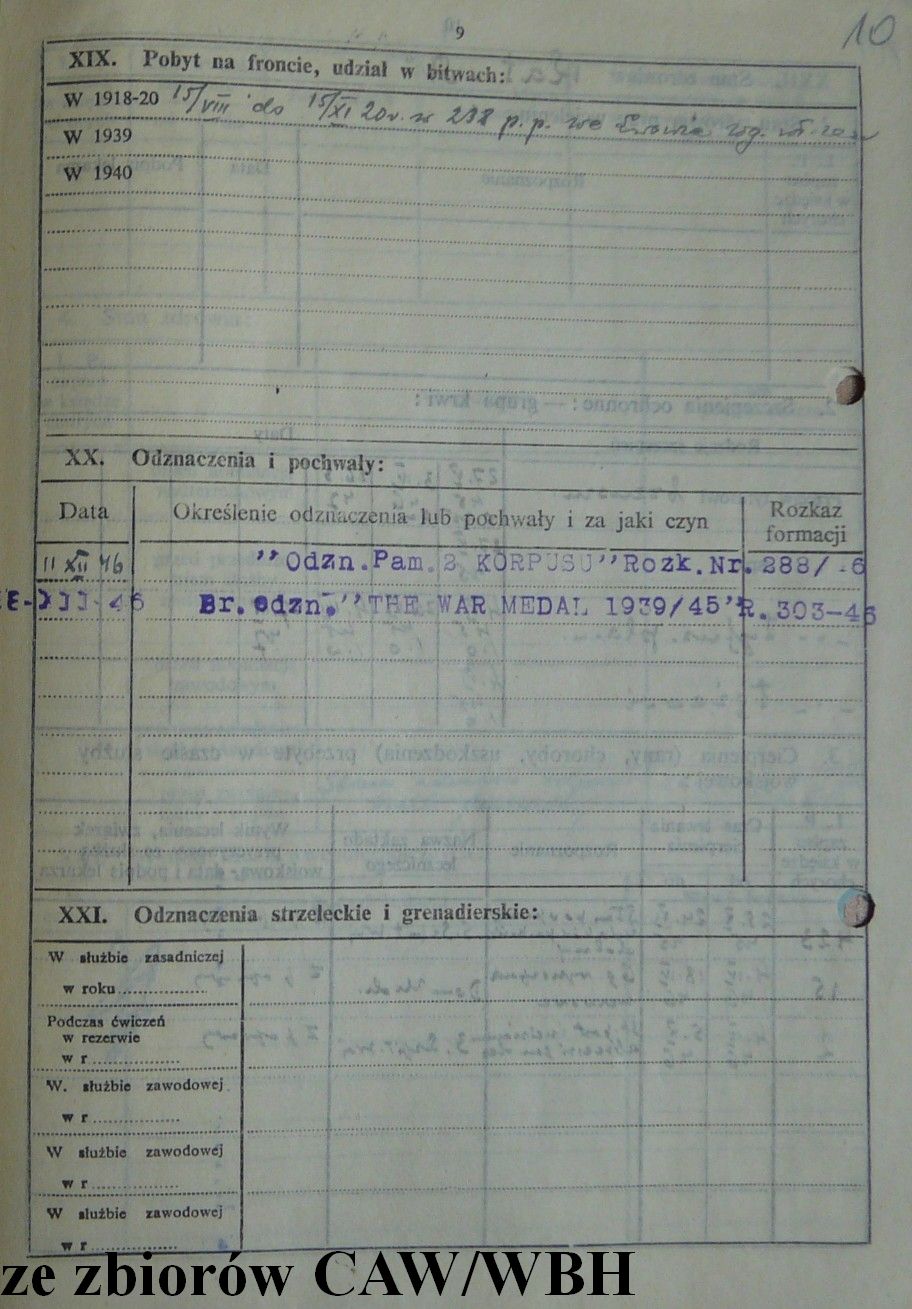 9
10
XIX. Pobyt na froncie, udział w bitwach:
W 1918-20 15/VIII do 15/XI 20 r. w 238 p. p. we Lwowie wg. wł.
W 1939
W 1940
XX. Odznaczenia i pochwały:
Data Określenie odznaczenia lub pochwały i za jaki czyn Rozkaz formacji
11 XII 46 "Odzn. Pam. 2 KORPUSU" Rozk. Nr. 288/-6
-XII-46 Br. odzn. "THE WAR MEDAL 1939/45" R. 303-46
XXI. Odznaczenia strzeleckie i grenadierskie:
W służbie zasadniczej
w roku
Podczas ćwiczeń
w rezerwie
w r
W. służbie zawodowej
w r
W służbie zawodowej
w r
W służbie zawodowej
w r
ze zbiorów CAW/WBH